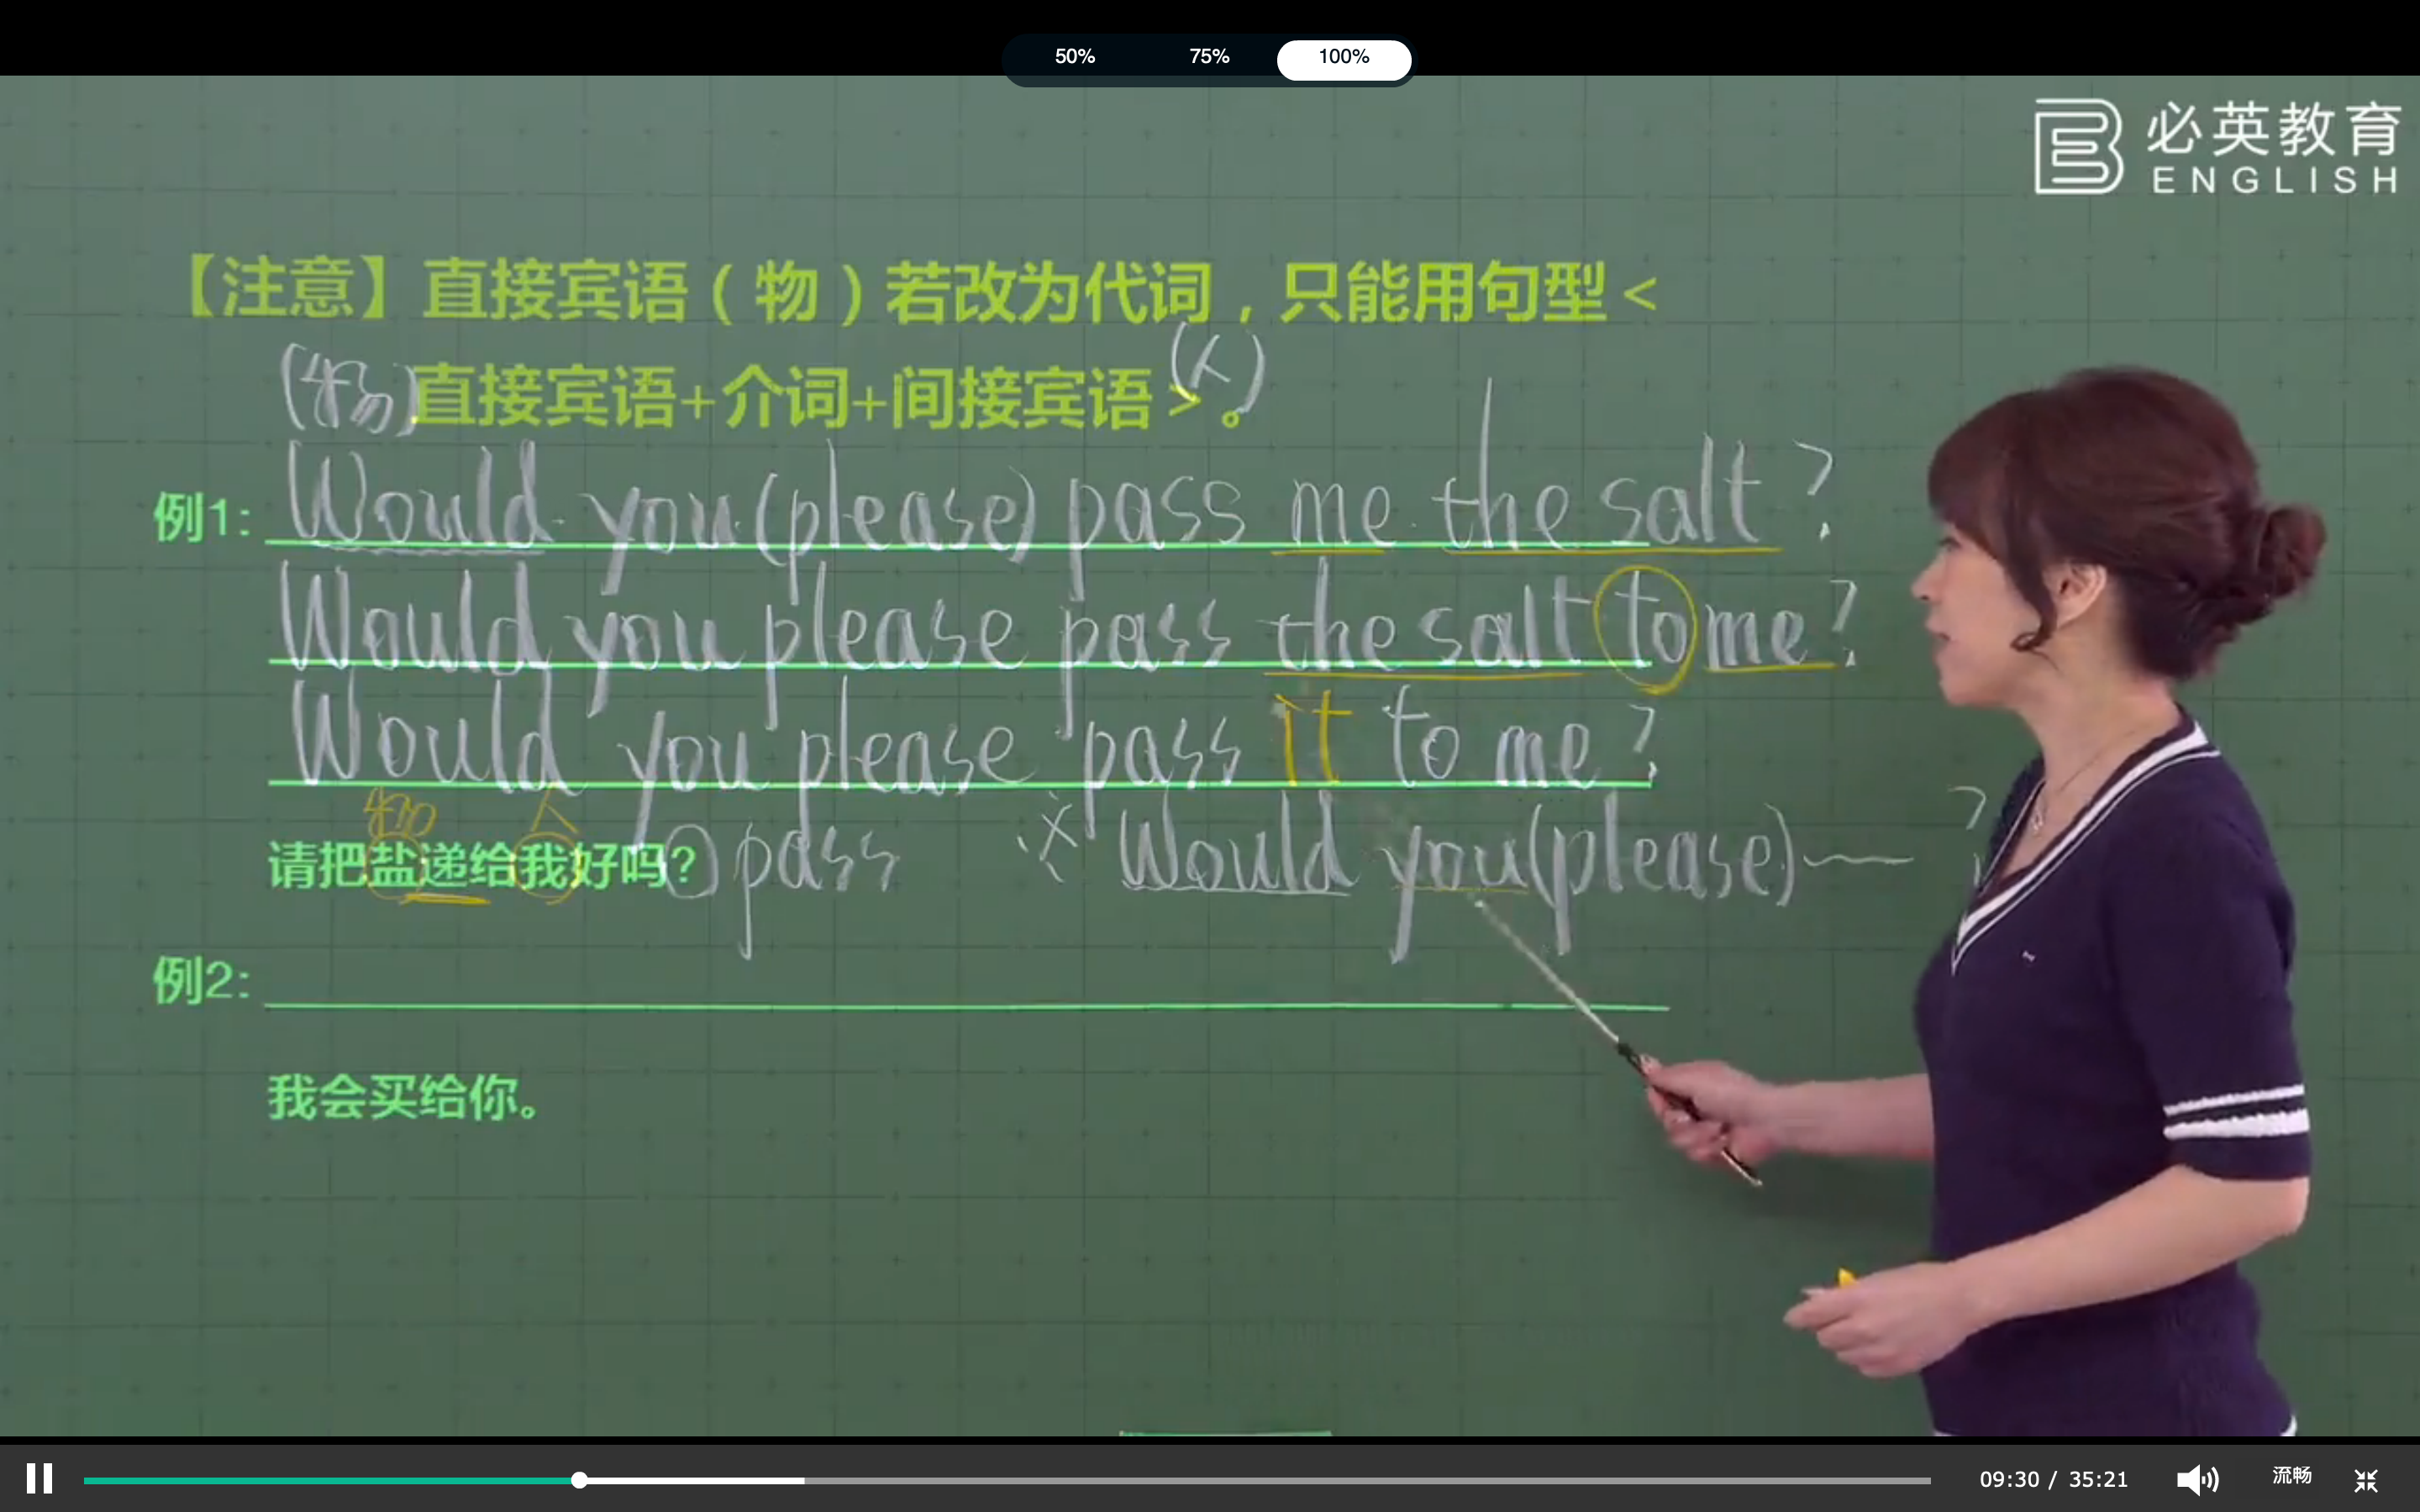 50% 75% 100%
必英教育
ENGLISH
【注意】直接宾语（物）若改为代词，只能用句型<
(物)直接宾语+介词+间接宾语>。(人)
例1: Would you (please) pass me the salt?
Would you please pass the salt to me?
Would you please pass it to me?
物 人
请把盐递给我好吗? pass ※ Would you (please) — ?
例2:
我会买给你。
09:30 / 35:21 流畅